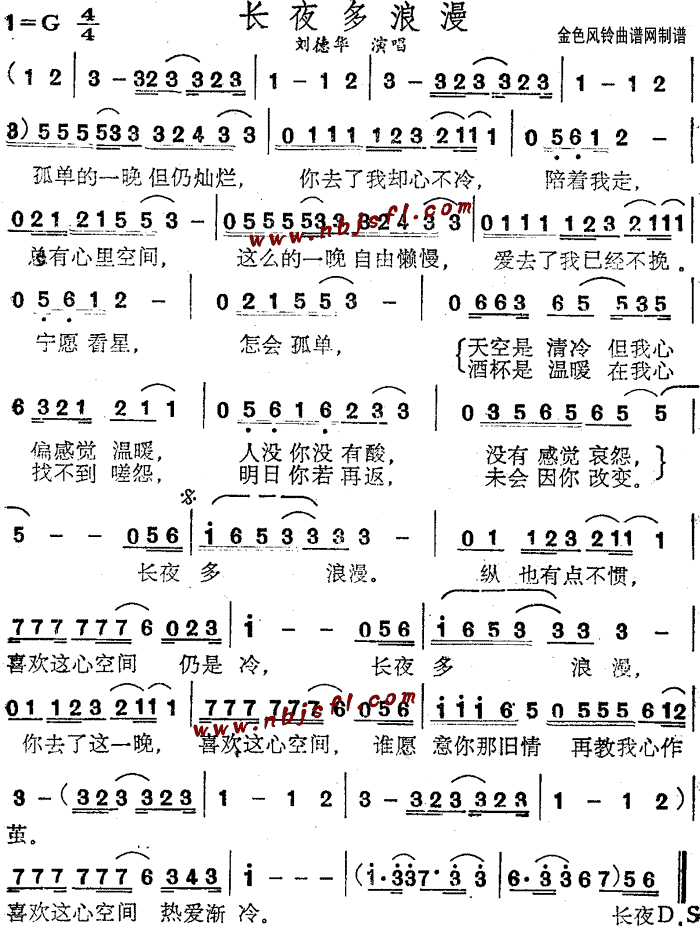 1=G 4/4 长夜多浪漫
刘德华 演唱 金色风铃曲谱网制谱
( 1 2 | 3 - 323 323 | 1 - 1 2 | 3 - 323 323 | 1 - 1 2 |
3 ) 555533 32433 | 0111 123 2111 | 0 561 2 - |
孤单的一晚 但仍灿烂， 你去了我却心不冷， 陪着我走，
021 2155 3 - | 0555533 32433 | 0111 123 2111 |
总有心里空间， 这么的一晚 自由懒慢， 爱去了我已经不挽。
www.nbjsfl.com
0 5612 - | 0 2155 3 - | 0 663 65 535 |
宁愿 看星， 怎会 孤单， 天空是 清冷 但我心
酒杯是 温暖 在我心
6 321 211 | 0 561 6233 | 0 356565 5 |
偏感觉 温暖， 人没你没 有酸， 没有 感觉 哀怨，
找不到 嗟怨， 明日你若 再返， 未会 因你 改变。
5 - - 056 | i 653 333 3 - | 01 123 211 1 |
长夜 多 浪漫。 纵 也有点不惯，
777 777 6 023 | i - - 056 | i 653 33 3 - |
喜欢这心空间 仍是 冷， 长夜 多 浪漫，
01 123 211 1 | 777 777 6 056 | iii 65 0555 612 |
www.nbjsfl.com
你去了这一晚， 喜欢这心空间， 谁愿 意你那旧情 再教我心作
3 - ( 323 323 | 1 - 1 2 | 3 - 323 323 | 1 - 1 2 ) |
茧。
777 777 6 343 | i - - - | ( i·337· 3 3 | 6·3 367 ) 56 |
喜欢这心空间 热爱渐 冷。 长夜D.S